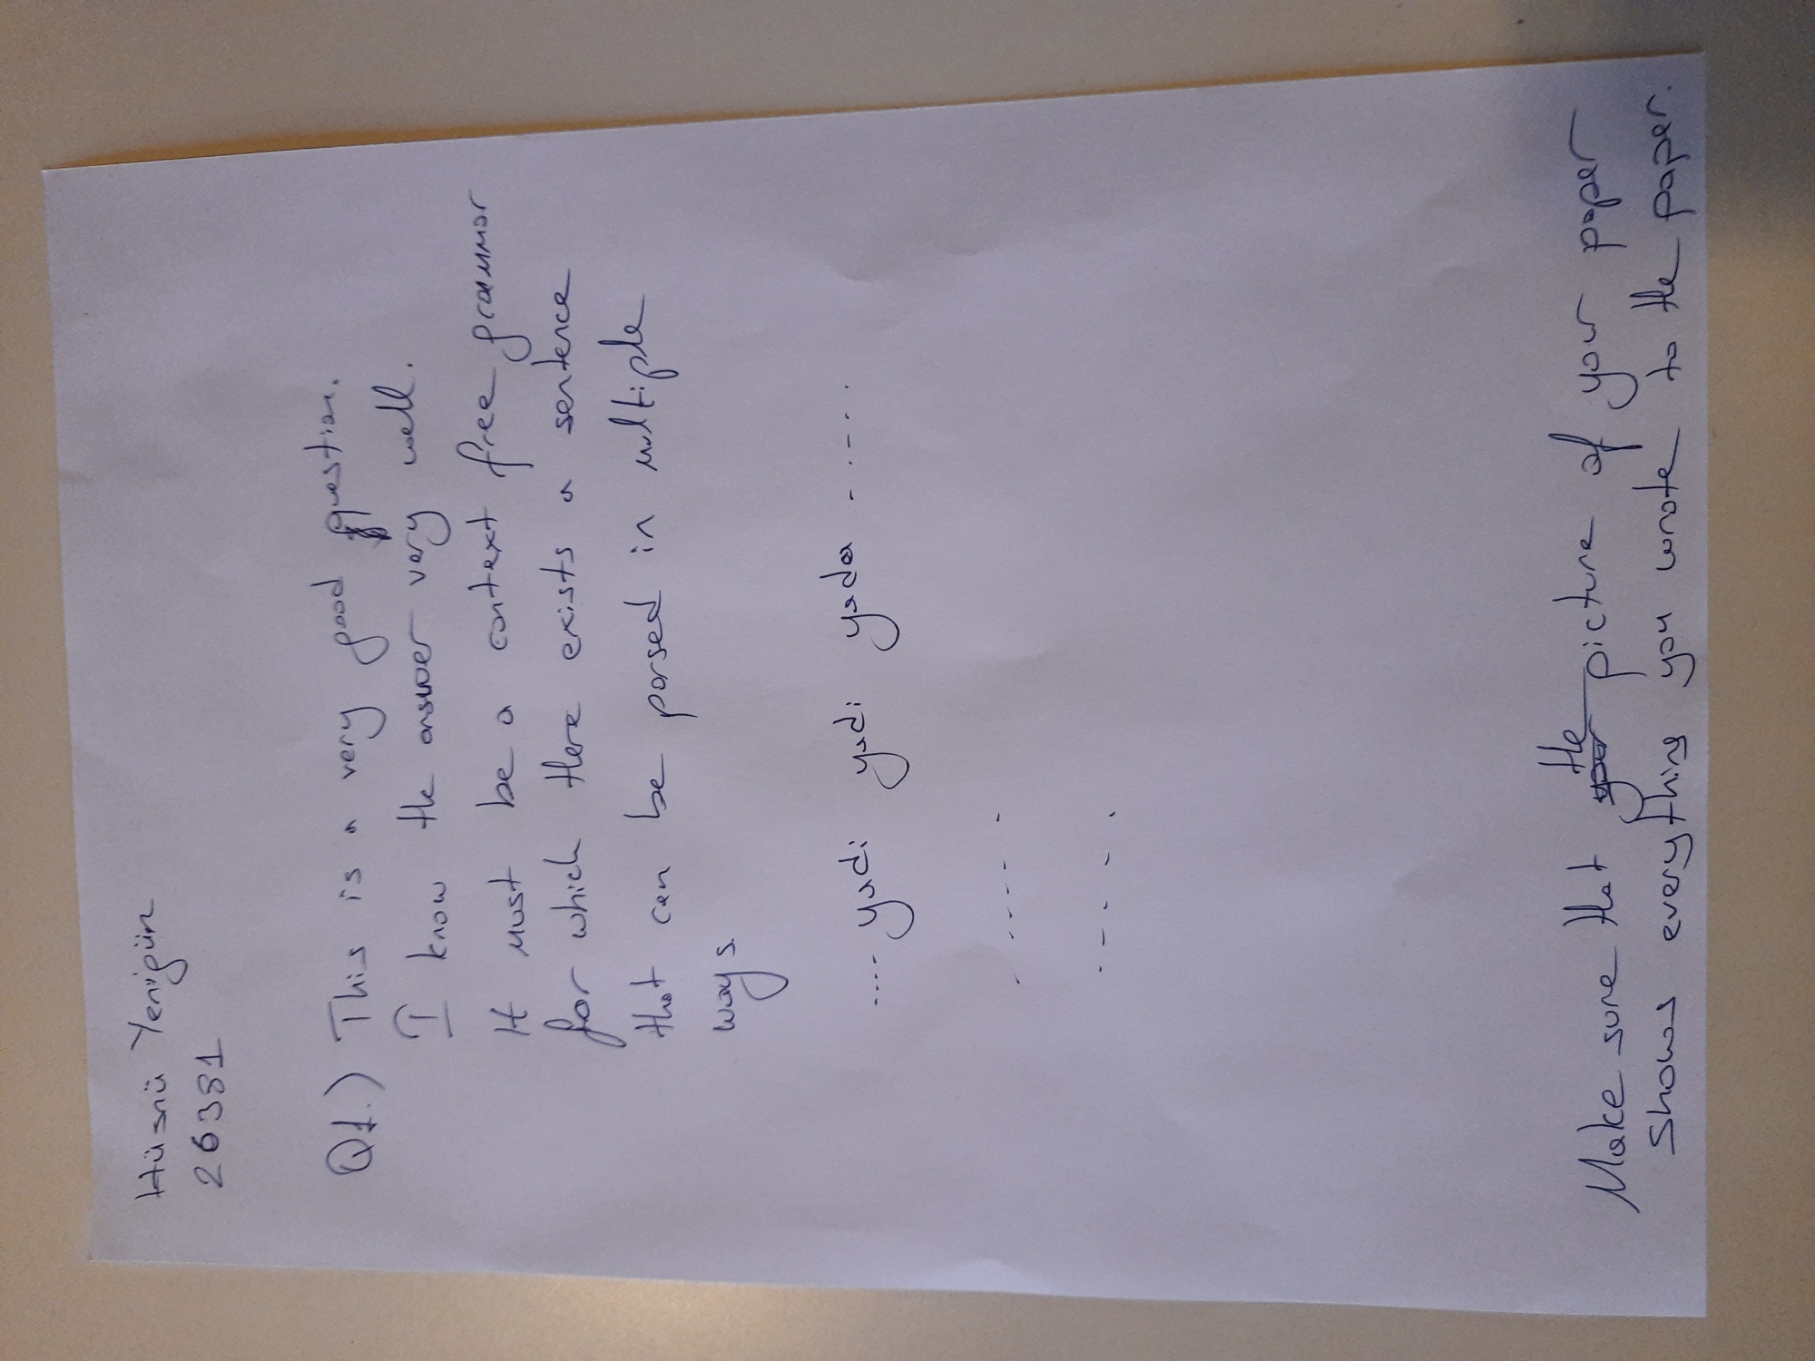 Hüsnü Yenigün
26381
Q1.) This is a very good question.
I know the answer very well.
It must be a context free grammar
for which there exists a sentence
that can be parsed in multiple
ways.
.... yadi yadi yada ......
. ..... .
. . . . .
Make sure that the picture of your paper
shows everything you wrote to the paper.